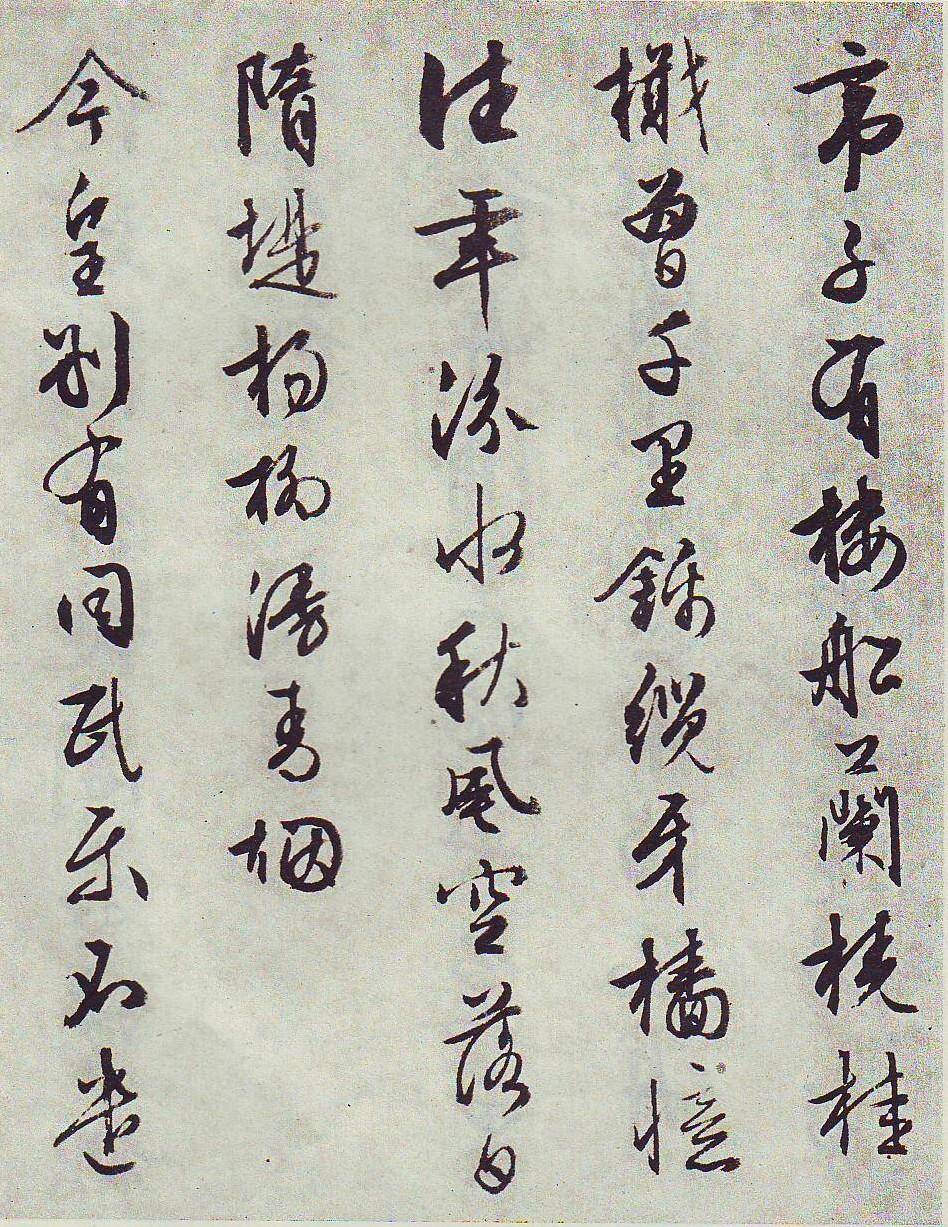 帝子有樓船蘭橈桂
檝曾千里錦纜牙檣憶
往年汾水秋風空落日
隋堤楊柳漫青烟
今皇別有同民樂不遣